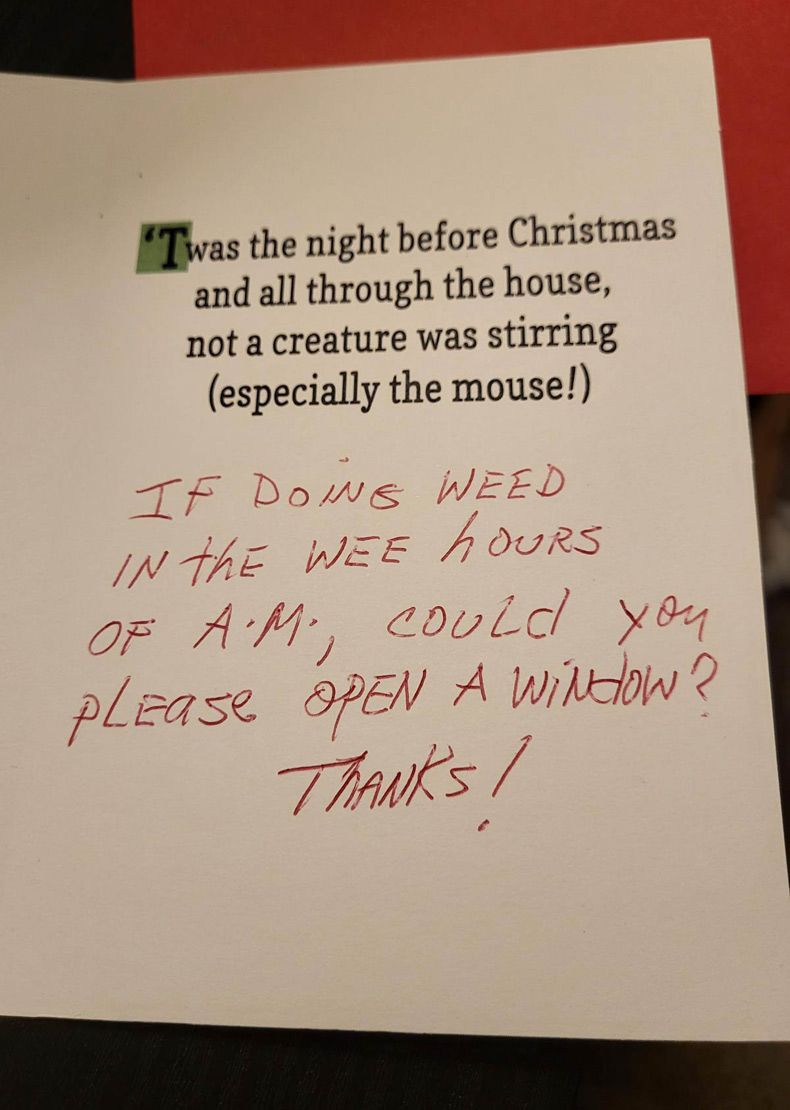 ‘Twas the night before Christmas
and all through the house,
not a creature was stirring
(especially the mouse!)
IF DOING WEED
IN thE WEE hOURS
OF A.M., COULd you
pLEase OPEN A WiNdOW?
THANKS!